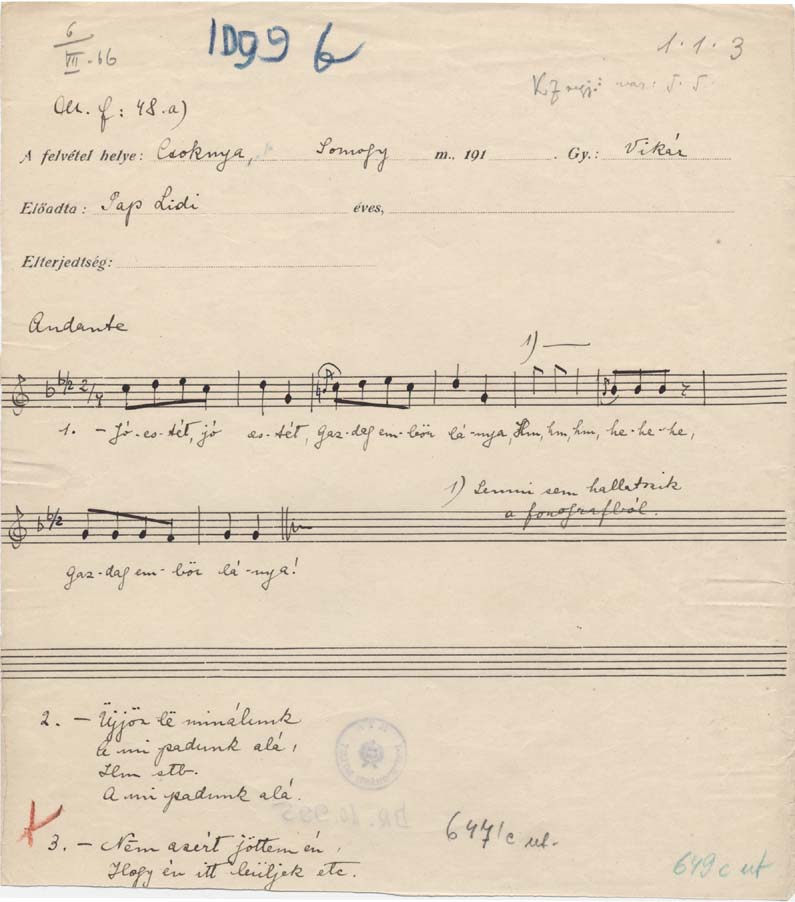 6
VII.-66
1D99 6
1.1.3
M. f: 48.a)
A felvétel helye: Csoknya, Somogy m., 191 . Gy.: Vikár
Előadta: Pap Lidi éves,
Elterjedtség:
Andante
1)
2/4
1. - Jó-es-tét, jó es-tét, gaz-dag em-bör lá-nya, Hm, hm, hm, he-he-he,
1) Semmi sem hallatszik
a fonografból.
gaz-dag em-bör lá-nya!
2. - Üjjön lë minálunk
A mi padunk alá,
Hm stb.
A mi padunk alá.
3. - Nëm azért jöttem én,
Hogy én itt leüljek etc.
647/c ut.
649 c ut